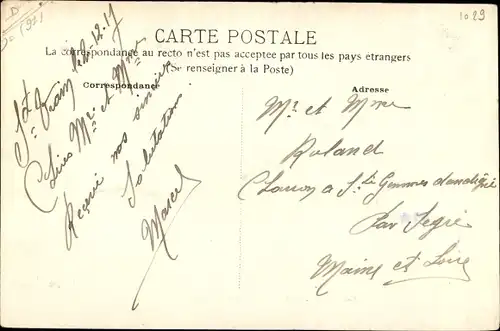 D
1029
CARTE POSTALE
La correspondance au recto n'est pas acceptee par tous les pays étrangers
(Se renseigner à la Poste)
Correspondance
Adresse
le 2-12-17
Chers Mr et Mme
Reçevé nos sincères
Salutations
Marcel
Mr et Mme
Roland
a Ste Gemmes d'andigné
Par Segré
Maine et Loire